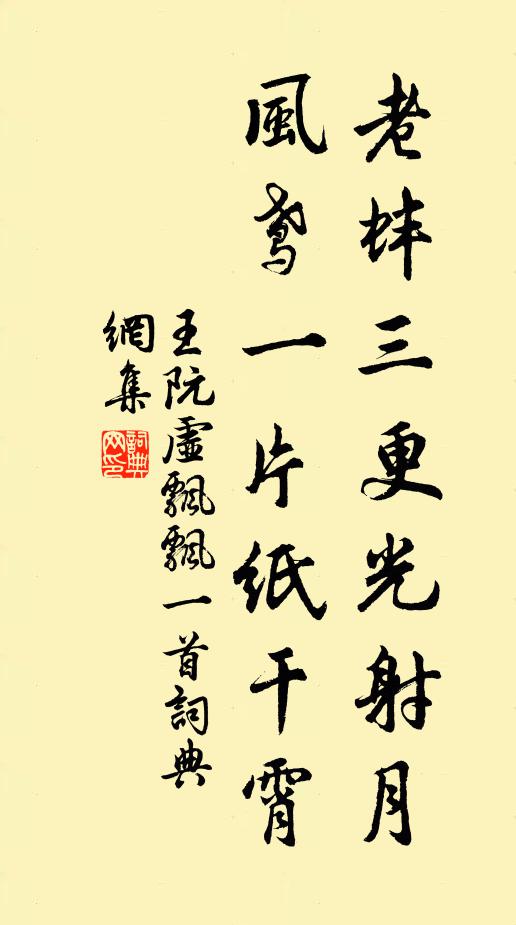 老蚌三更光射月
風鸢一片紙干霄
王阮虛飄飄一首詞典
網集
詞典
网印